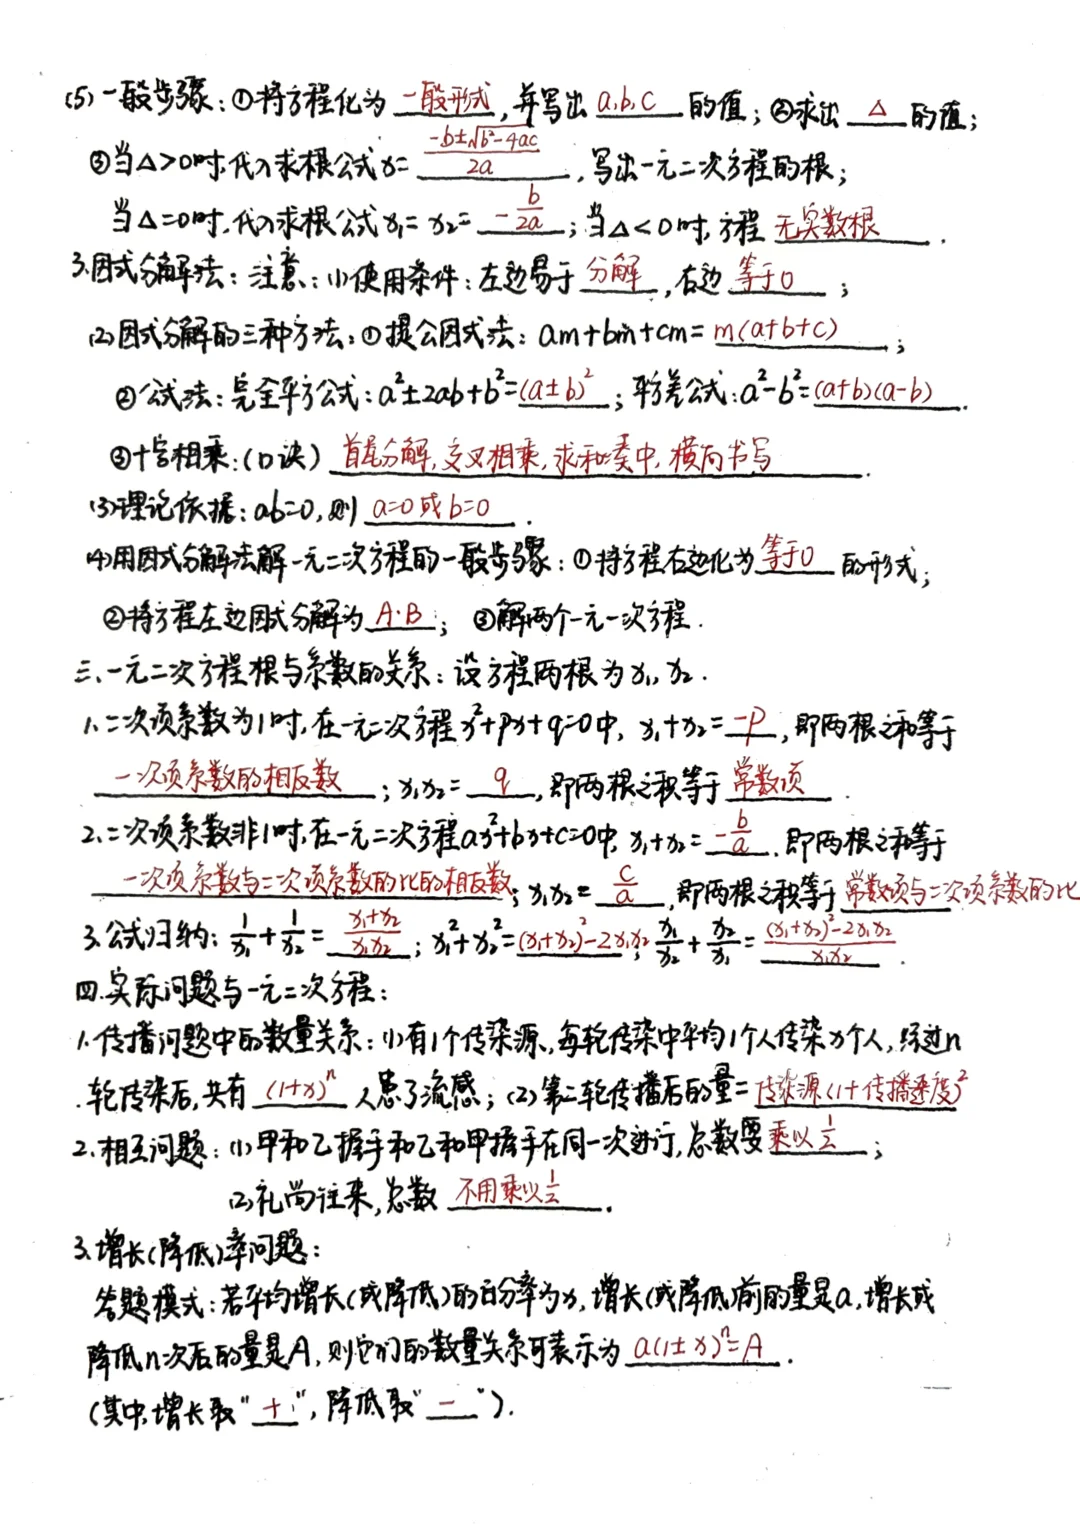 (5)一般步骤:①将方程化为 一般形式,并写出 a,b,c 的值;②求出 △ 的值;
③当△>0时,代入求根公式x= (-b±√(b²-4ac))/2a ,写出一元二次方程的根;
当△=0时,代入求根公式x₁=x₂= -b/2a ;当△<0时,方程 无实数根.
3.因式分解法:注意:(1)使用条件:左边易于 分解,右边 等于0;
(2)因式分解的三种方法:①提公因式法:am+bm+cm=m(a+b+c);
②公式法:完全平方公式:a²±2ab+b²=(a±b)²;平方差公式:a²-b²=(a+b)(a-b).
③十字相乘:(口诀) 首尾分解,交叉相乘,求和凑中,横向书写.
(3)理论依据:ab=0,则 a=0或b=0.
(4)用因式分解法解一元二次方程的一般步骤:①将方程右边化为 等于0 的形式;
②将方程左边因式分解为 A·B; ③解两个一元一次方程.
三、一元二次方程根与系数的关系:设方程两根为x₁,x₂.
1.二次项系数为1时,在一元二次方程x²+px+q=0中, x₁+x₂=-p,即两根之和等于
一次项系数的相反数;x₁x₂= q,即两根之积等于 常数项.
2.二次项系数非1时,在一元二次方程ax²+bx+c=0中, x₁+x₂=-b/a,即两根之和等于
一次项系数与二次项系数的比的相反数;x₁x₂= c/a,即两根之积等于 常数项与二次项系数的比
3.公式归纳:1/x₁+1/x₂=(x₁+x₂)/x₁x₂;x₁²+x₂²=(x₁+x₂)²-2x₁x₂;x₁/x₂+x₂/x₁=((x₁+x₂)²-2x₁x₂)/x₁x₂.
四.实际问题与一元二次方程:
1.传播问题中的数量关系:(1)有1个传染源,每轮传染中平均1个人传染x个人,经过n
轮传染后,共有 (1+x)ⁿ 人患了流感;(2)第二轮传播后的量=传染源(1+传播速度)²
2.相互问题:(1)甲和乙握手和乙和甲握手在同一次进行,总数要乘以1/2;
(2)礼尚往来,总数 不用乘以1/2.
3.增长(降低)率问题:
答题模式:若平均增长(或降低)的百分率为x,增长(或降低)前的量是a,增长或
降低n次后的量是A,则它们的数量关系可表示为 a(1±x)ⁿ=A.
(其中,增长取"+",降低取"-").